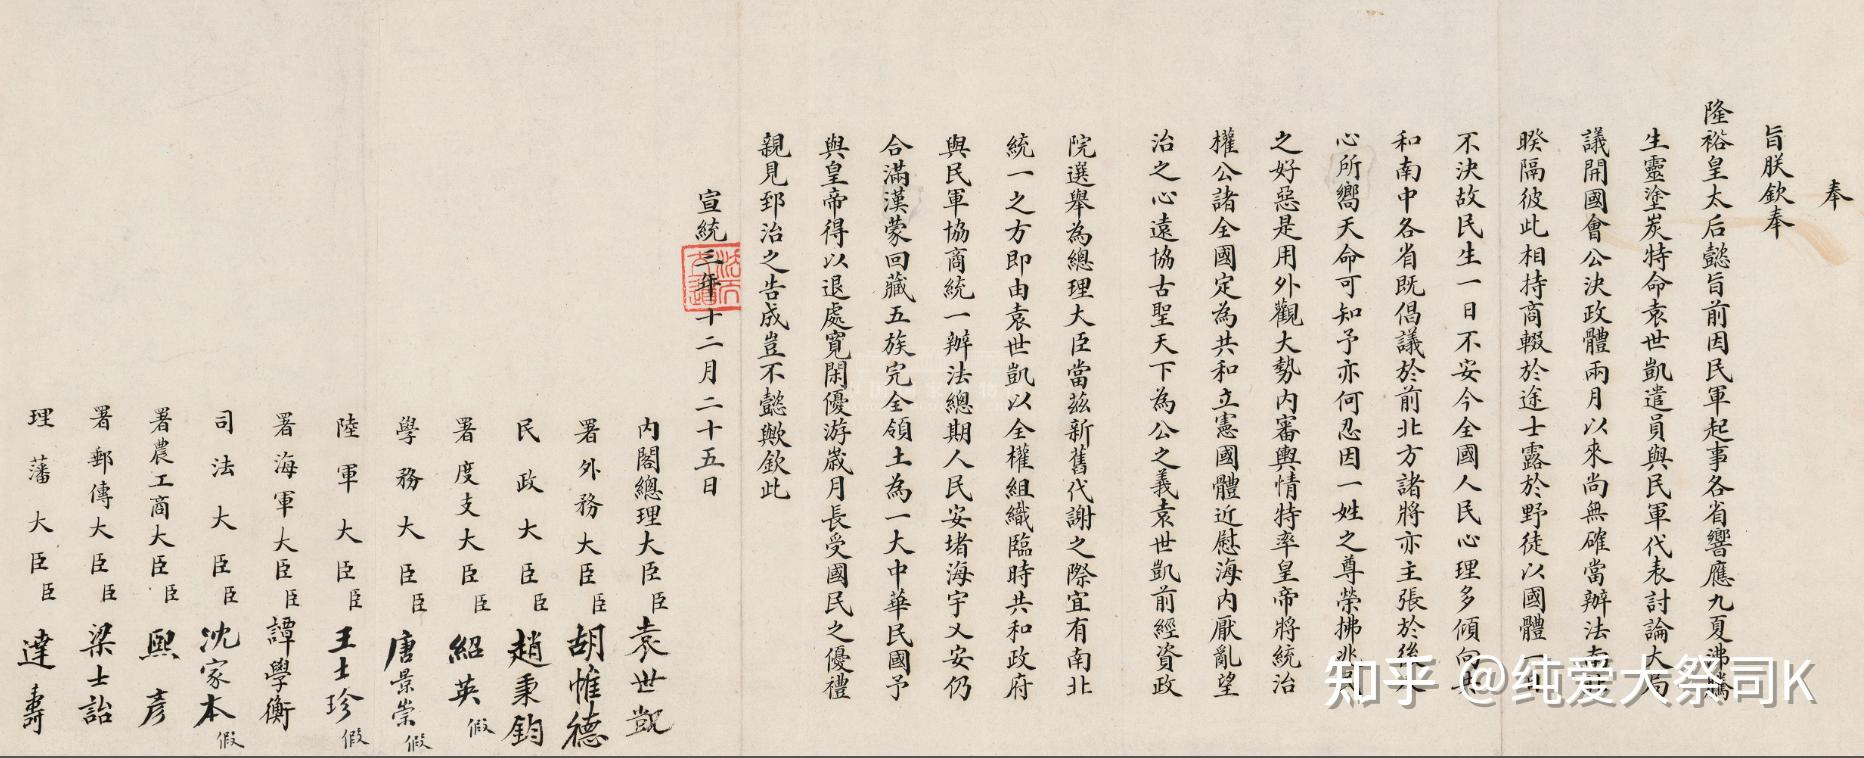 奉
旨朕欽奉
隆裕皇太后懿旨前因民軍起事各省響應九夏沸騰
生靈塗炭特命袁世凱遣員與民軍代表討論大局
議開國會公決政體兩月以來尚無確當辦法南
暌隔彼此相持商輟於途士露於野徒以國體一
不決故民生一日不安今全國人民心理多傾向
和南中各省既倡議於前北方諸將亦主張於後
心所嚮天命可知予亦何忍因一姓之尊榮拂兆
之好惡是用外觀大勢內審輿情特率皇帝將統治
權公諸全國定為共和立憲國體近慰海內厭亂望
治之心遠協古聖天下為公之義袁世凱前經資政
院選舉為總理大臣當茲新舊代謝之際宜有南北
統一之方即由袁世凱以全權組織臨時共和政府
與民軍協商統一辦法總期人民安堵海宇乂安仍
合滿漢蒙回藏五族完全領土為一大中華民國予
與皇帝得以退處寬閑優游歲月長受國民之優禮
親見郅治之告成豈不懿歟欽此
宣統三年十二月二十五日
法天立道
內閣總理大臣臣袁世凱
署外務大臣臣胡惟德
民政大臣臣趙秉鈞
署度支大臣臣紹英假
學務大臣臣唐景崇假
陸軍大臣臣王士珍假
署海軍大臣臣譚學衡
司法大臣臣沈家本假
署農工商大臣臣熙彥
署郵傳大臣臣梁士詒
理藩大臣臣達壽
知乎 @纯爱大祭司K